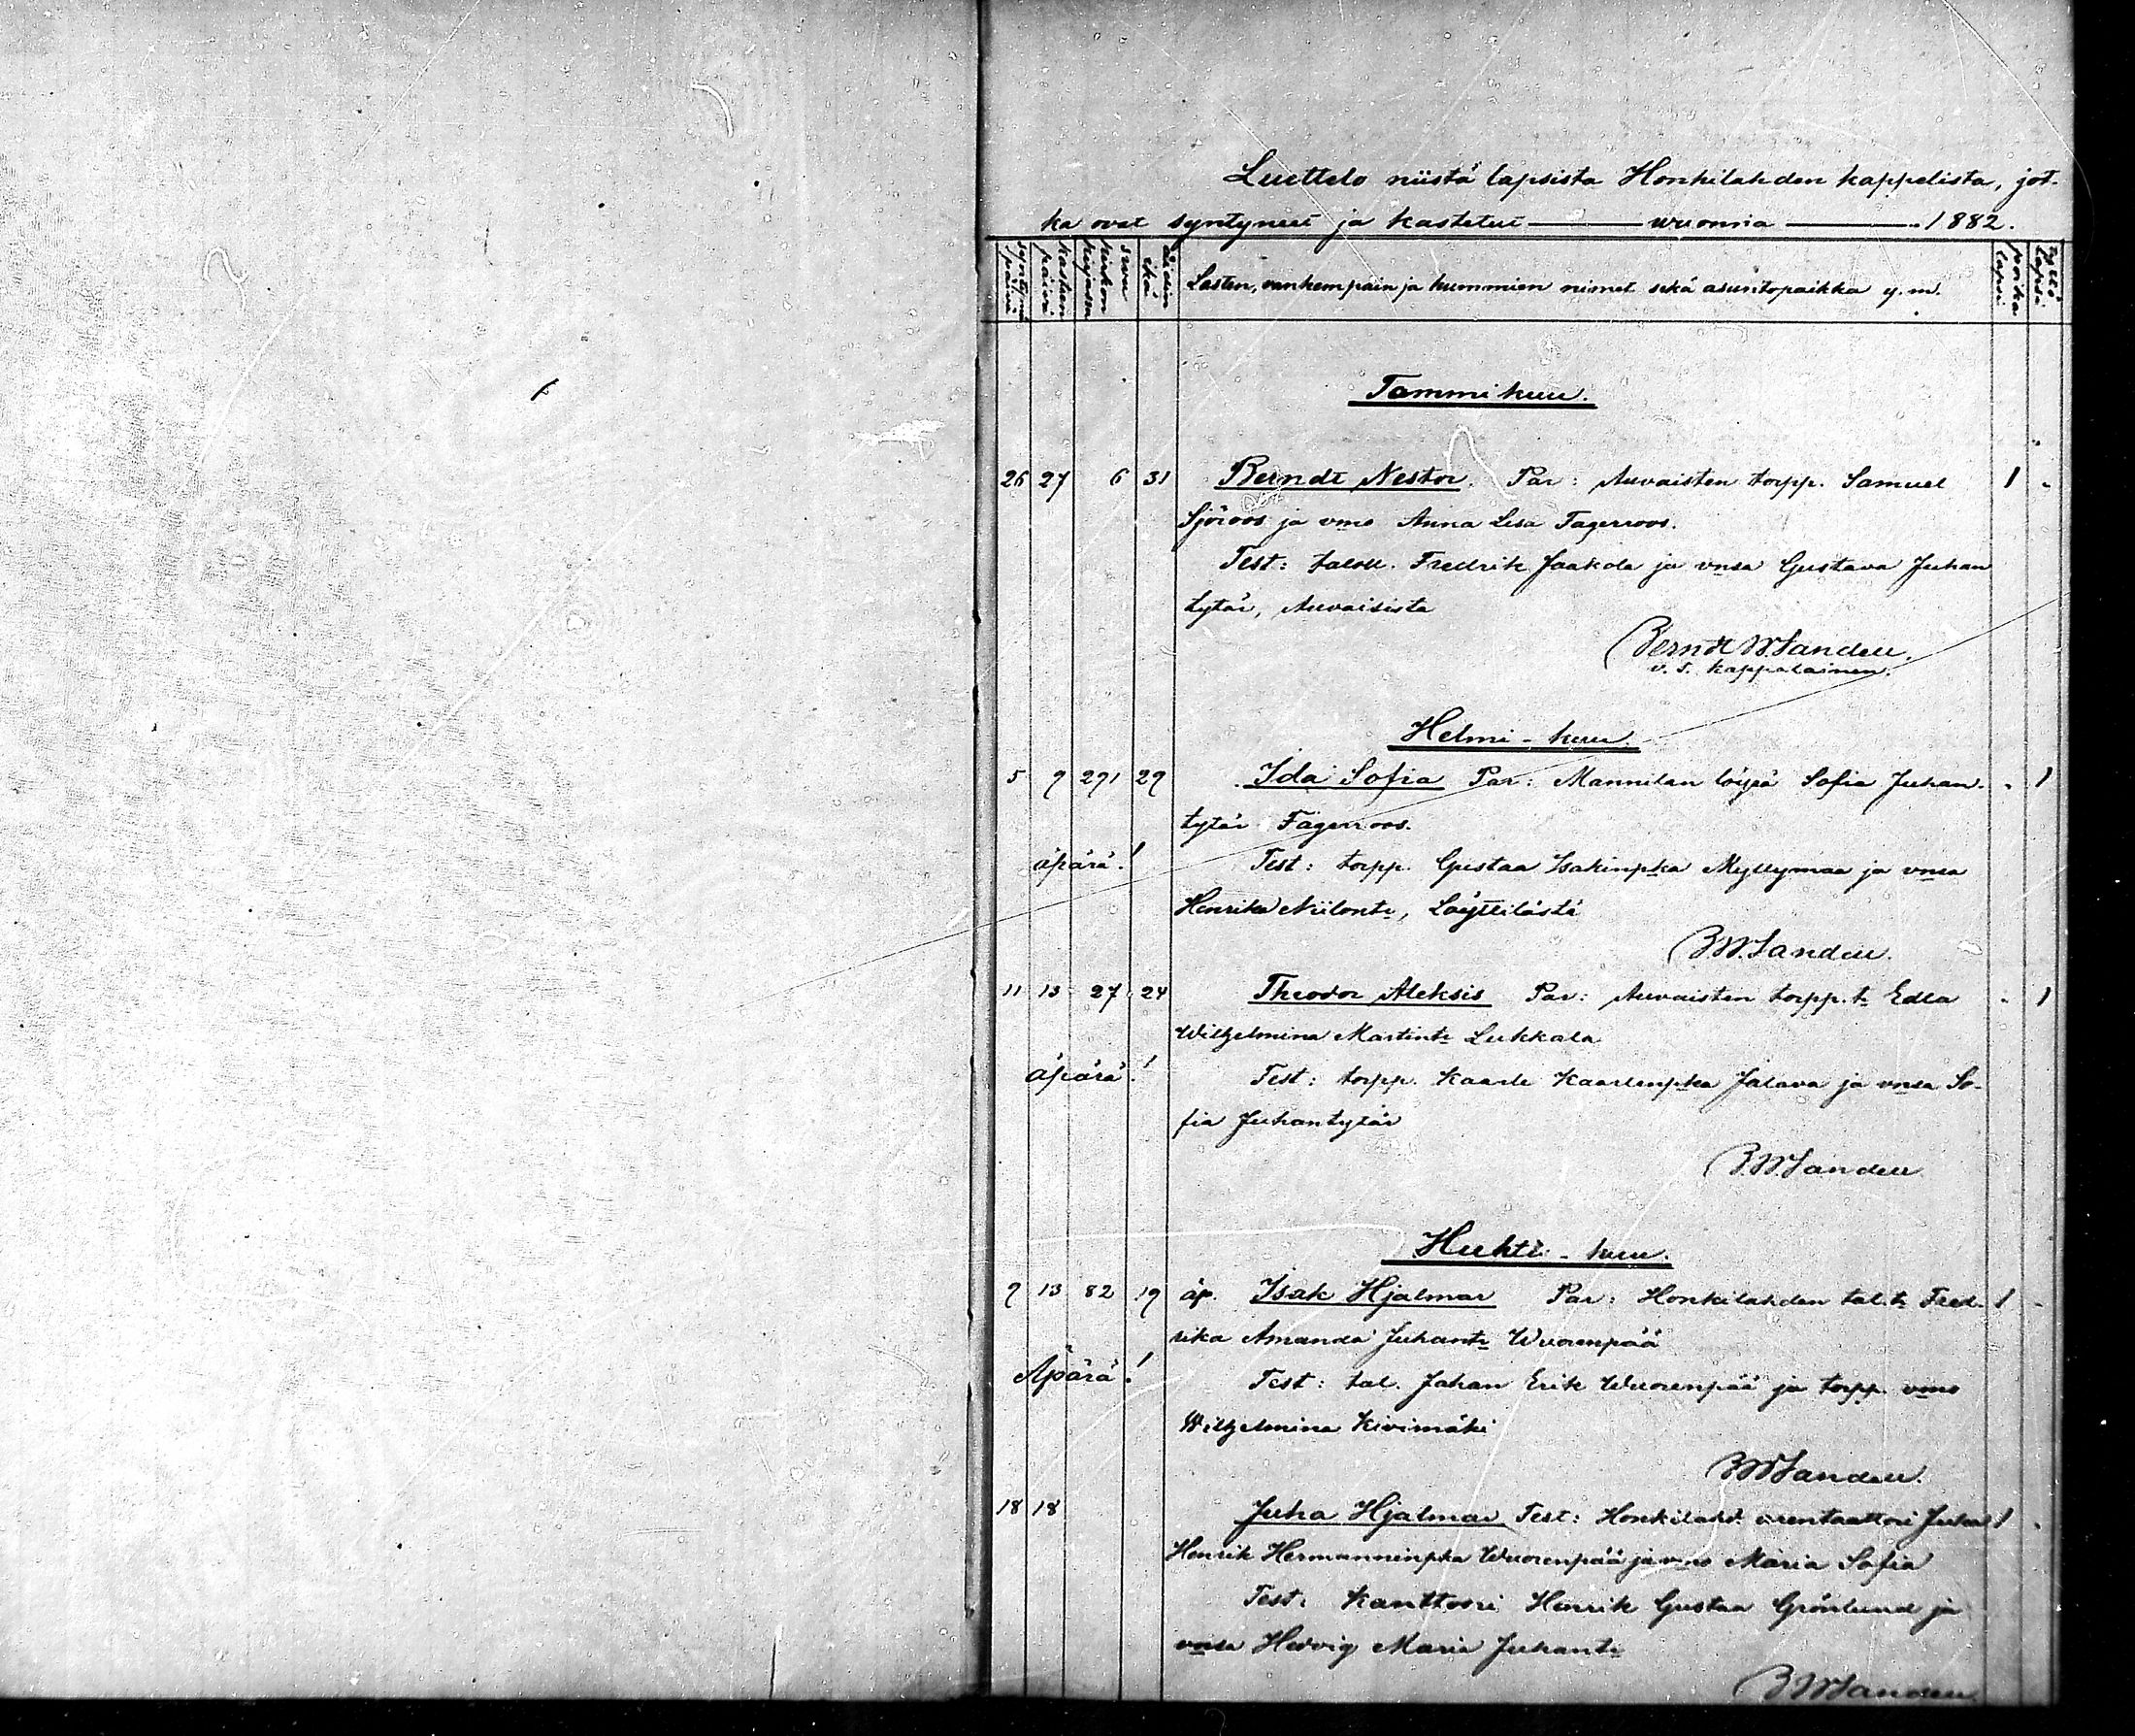 Luettelo niistä lapsista Honkilahden kappelista, jot-
ka ovat syntyneet ja kastetut — wuonna — 1882.
syntymä päivä
kasteen päivä
sivu kirkon kirjassa
äidin ikä
Lasten, vanhempain ja kummien nimet sekä asuntopaikka y.m.
poika lapsi
tyttö lapsi
Tammikuu.
26 27 6 31 Berndt Nestor. Par: Auvaisten torpp. Samuel 1 "
Sjöroos ja vmo Anna Lisa Fagerroos.
Test: taloll. Fredrik Jaakola ja vnsa Gustava Juhan
tytär, Auvaisista
Berndt W. Sandell.
v. t. kappalainen.
Helmi-kuu.
5 9 291 29 Ida Sofia Par: Mannilan löysä Sofia Juhan- " 1
tytär Fagerroos.
äpärä! Test: torpp. Gustaa Isakinpka Myllymaa ja vnsa
Henrika Niilontr, Löyttilästä
B.W. Sandell.
11 13 27 24 Theodor Aleksis Par: Auvaisten torpp. tr Edla " 1
Wilhelmina Martintr Lukkala
äpärä! Test: torpp. Kaarle Kaarlenpka Jalava ja vnsa So-
fia Juhantytär
B.W. Sandell
Huhti-kuu.
9 13 82 19 äp. Isak Hjalmar Par: Honkilahden tal. tr Fred- 1 "
rika Amanda Juhantr Wuorenpää
Äpärä! Test: tal. Johan Erik Wuorenpää ja torpp. vmo
Wilhelmina Kivimäki
B W Sandell.
18 18 Juha Hjalmar Test: Honkilahd. arentaattori Juha 1 "
Henrik Hermanninpka Wuorenpää ja vmo Maria Sofia
Test: Kanttoori Henrik Gustaa Grönlund ja
vnsa Hedvig Maria Juhantr
B W Sandell